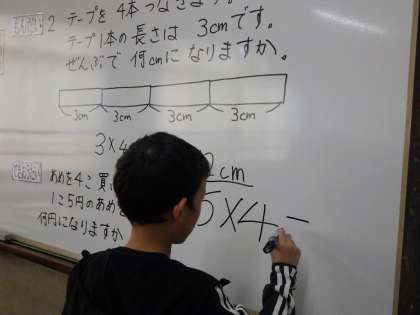 2 テープを4本つなぎます。
テープ1本の長さは 3cmです。
ぜんぶで 何cmに なりますか。
3cm 3cm 3cm 3cm
3×4
2cm
あめを4こ 買
1こ5円のあめを
何円になりますか
5×4=